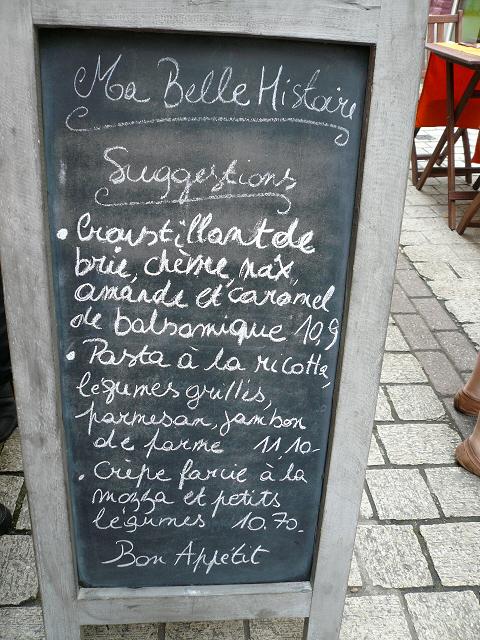 Ma Belle Histoire
Suggestions
• Croustillant de
brie, chèvre, nax,
amande et caramel
de balsamique 10,9
• Pasta à la ricotta,
légumes grillés,
parmesan, jambon
de parme 11.10-
• Crêpe farcie à la
mozza et petits
légumes 10.70-
Bon Appétit